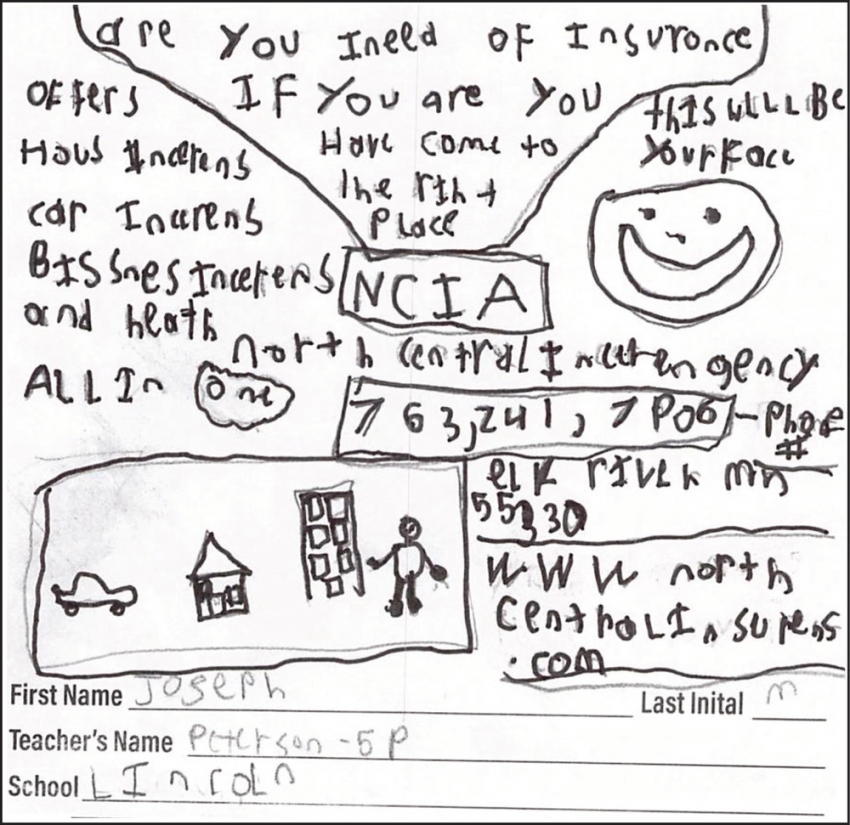 are you Ineed of Insuronce
IF You are you
Have come to
the rtht
Place
offers
Hous Incerens
car Incerens
BISSnes Incerens
and heath
ALL In One
this will Be
Your Face
NCIA
north central Incuren gency
763,241,7906 - Phone
#
elk river mn
55330
WWW north
CenthaLInsurens
.com
First Name Joseph
Last Inital m
Teacher's Name Peterson - 5P
School LIncoln